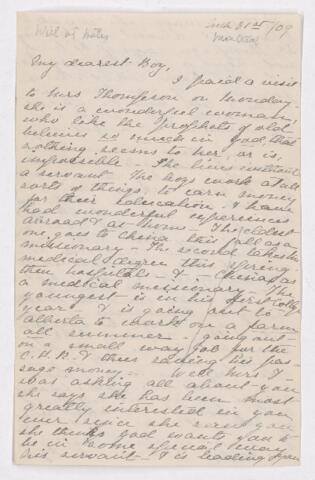 Mch 31st/09
Montreal
My dearest Boy,
I paid a visit
to Mrs Thompson on Monday -
she is a wonderful woman,
who like the prophets of old
believes so much in God, that
nothing seems to her, or is,
impossible - She lives without
a servant. The boys work at all
sorts of things, to earn money
for their education, & have
had wonderful experiences
abroad & at home - The eldest
one goes to China this fall as a
missionary - The second takes his
medical degree this spring -
then hospitals - & - China as
a medical missionary. The
youngest is in his first College
year & is going out to
Alberta to work on a farm
all summer - going out
on a small way job for the
C.P.R. & thus saving his pas-
sage money. - Well Mrs T -
was asking all about you
she says she has been most
greatly interested in you
ever since she saw you
she thinks God wants you to
be in some special way
His servant - & is leading you